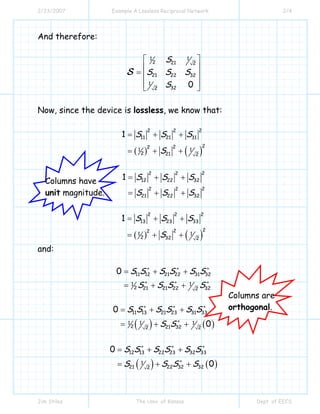 2/23/2007 Example A Lossless Reciprocal Network 2/4
And therefore:
½ S21 1/√2
S = S21 S22 S32
1/√2 S32 0
Now, since the device is lossless, we know that:
1 = |S11|² + |S21|² + |S31|²
= (½)² + |S21|² + (1/√2)²
Columns have unit magnitude.
1 = |S12|² + |S22|² + |S32|²
= |S21|² + |S22|² + |S32|²
1 = |S13|² + |S23|² + |S33|²
= (½)² + |S32|² + (1/√2)²
and:
0 = S11 S12* + S21 S22* + S31 S32*
= ½ S21* + S21 S22* + 1/√2 S32*
Columns are orthogonal.
0 = S11 S13* + S21 S23* + S31 S33*
= ½ (1/√2) + S21 S32* + 1/√2 (0)
0 = S12 S13* + S22 S23* + S32 S33*
= S21 (1/√2) + S22 S32* + S32 (0)
Jim Stiles The Univ. of Kansas Dept. of EECS